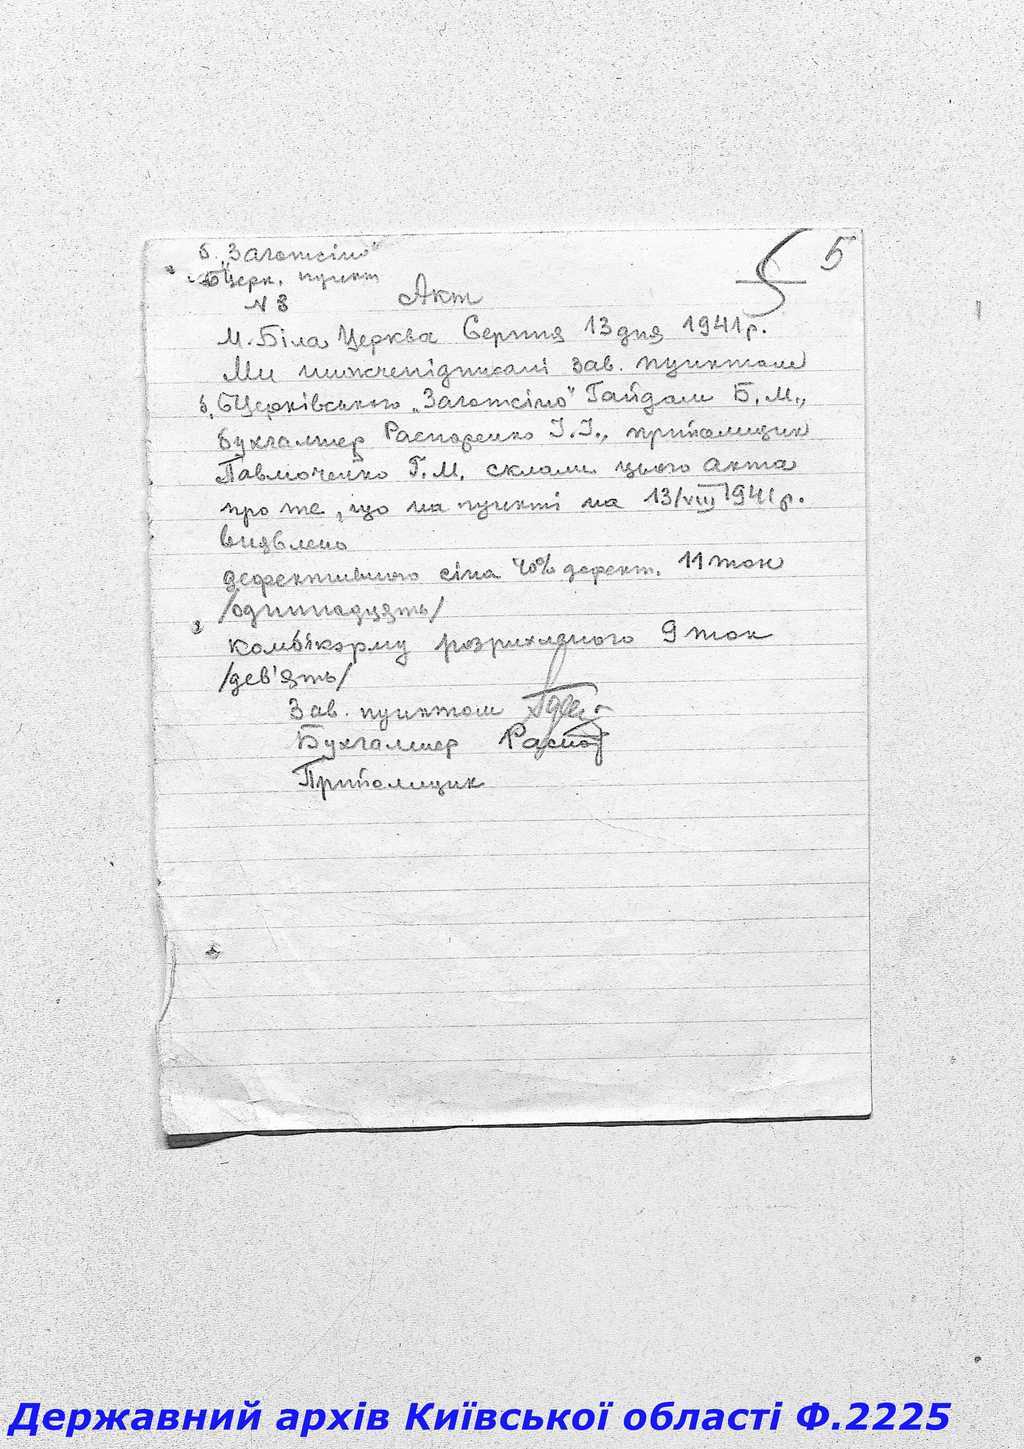 5
б. „Заготсіно"
БЦерк. пункт
N 3
Акт
М. Біла Церква Серпня 13 дня 1941 р.
Ми нижчепідписані зав. пунктом
б. БЦерківського „Заготсіно" Гайдам Б. М.,
бухгалтер Распоренко І. І., прийомщик
Павлюченко Г. М. склали цього акта
про те, що на пункті на 13/VIII 1941 р.
виявлено
дефективного сіна 40% дефект. 11 тон
/одиннадцять/
комбікорму розрихляного 9 тон
/дев'ять/
Зав. пунктом
Бухгалтер Распо
Прийомщик
Державний архів Київської області Ф.2225